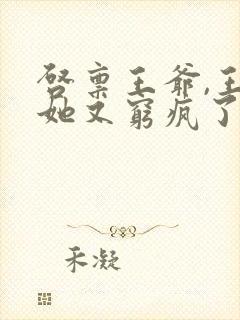 启禀王爷,王
她又穷疯了
禾凝